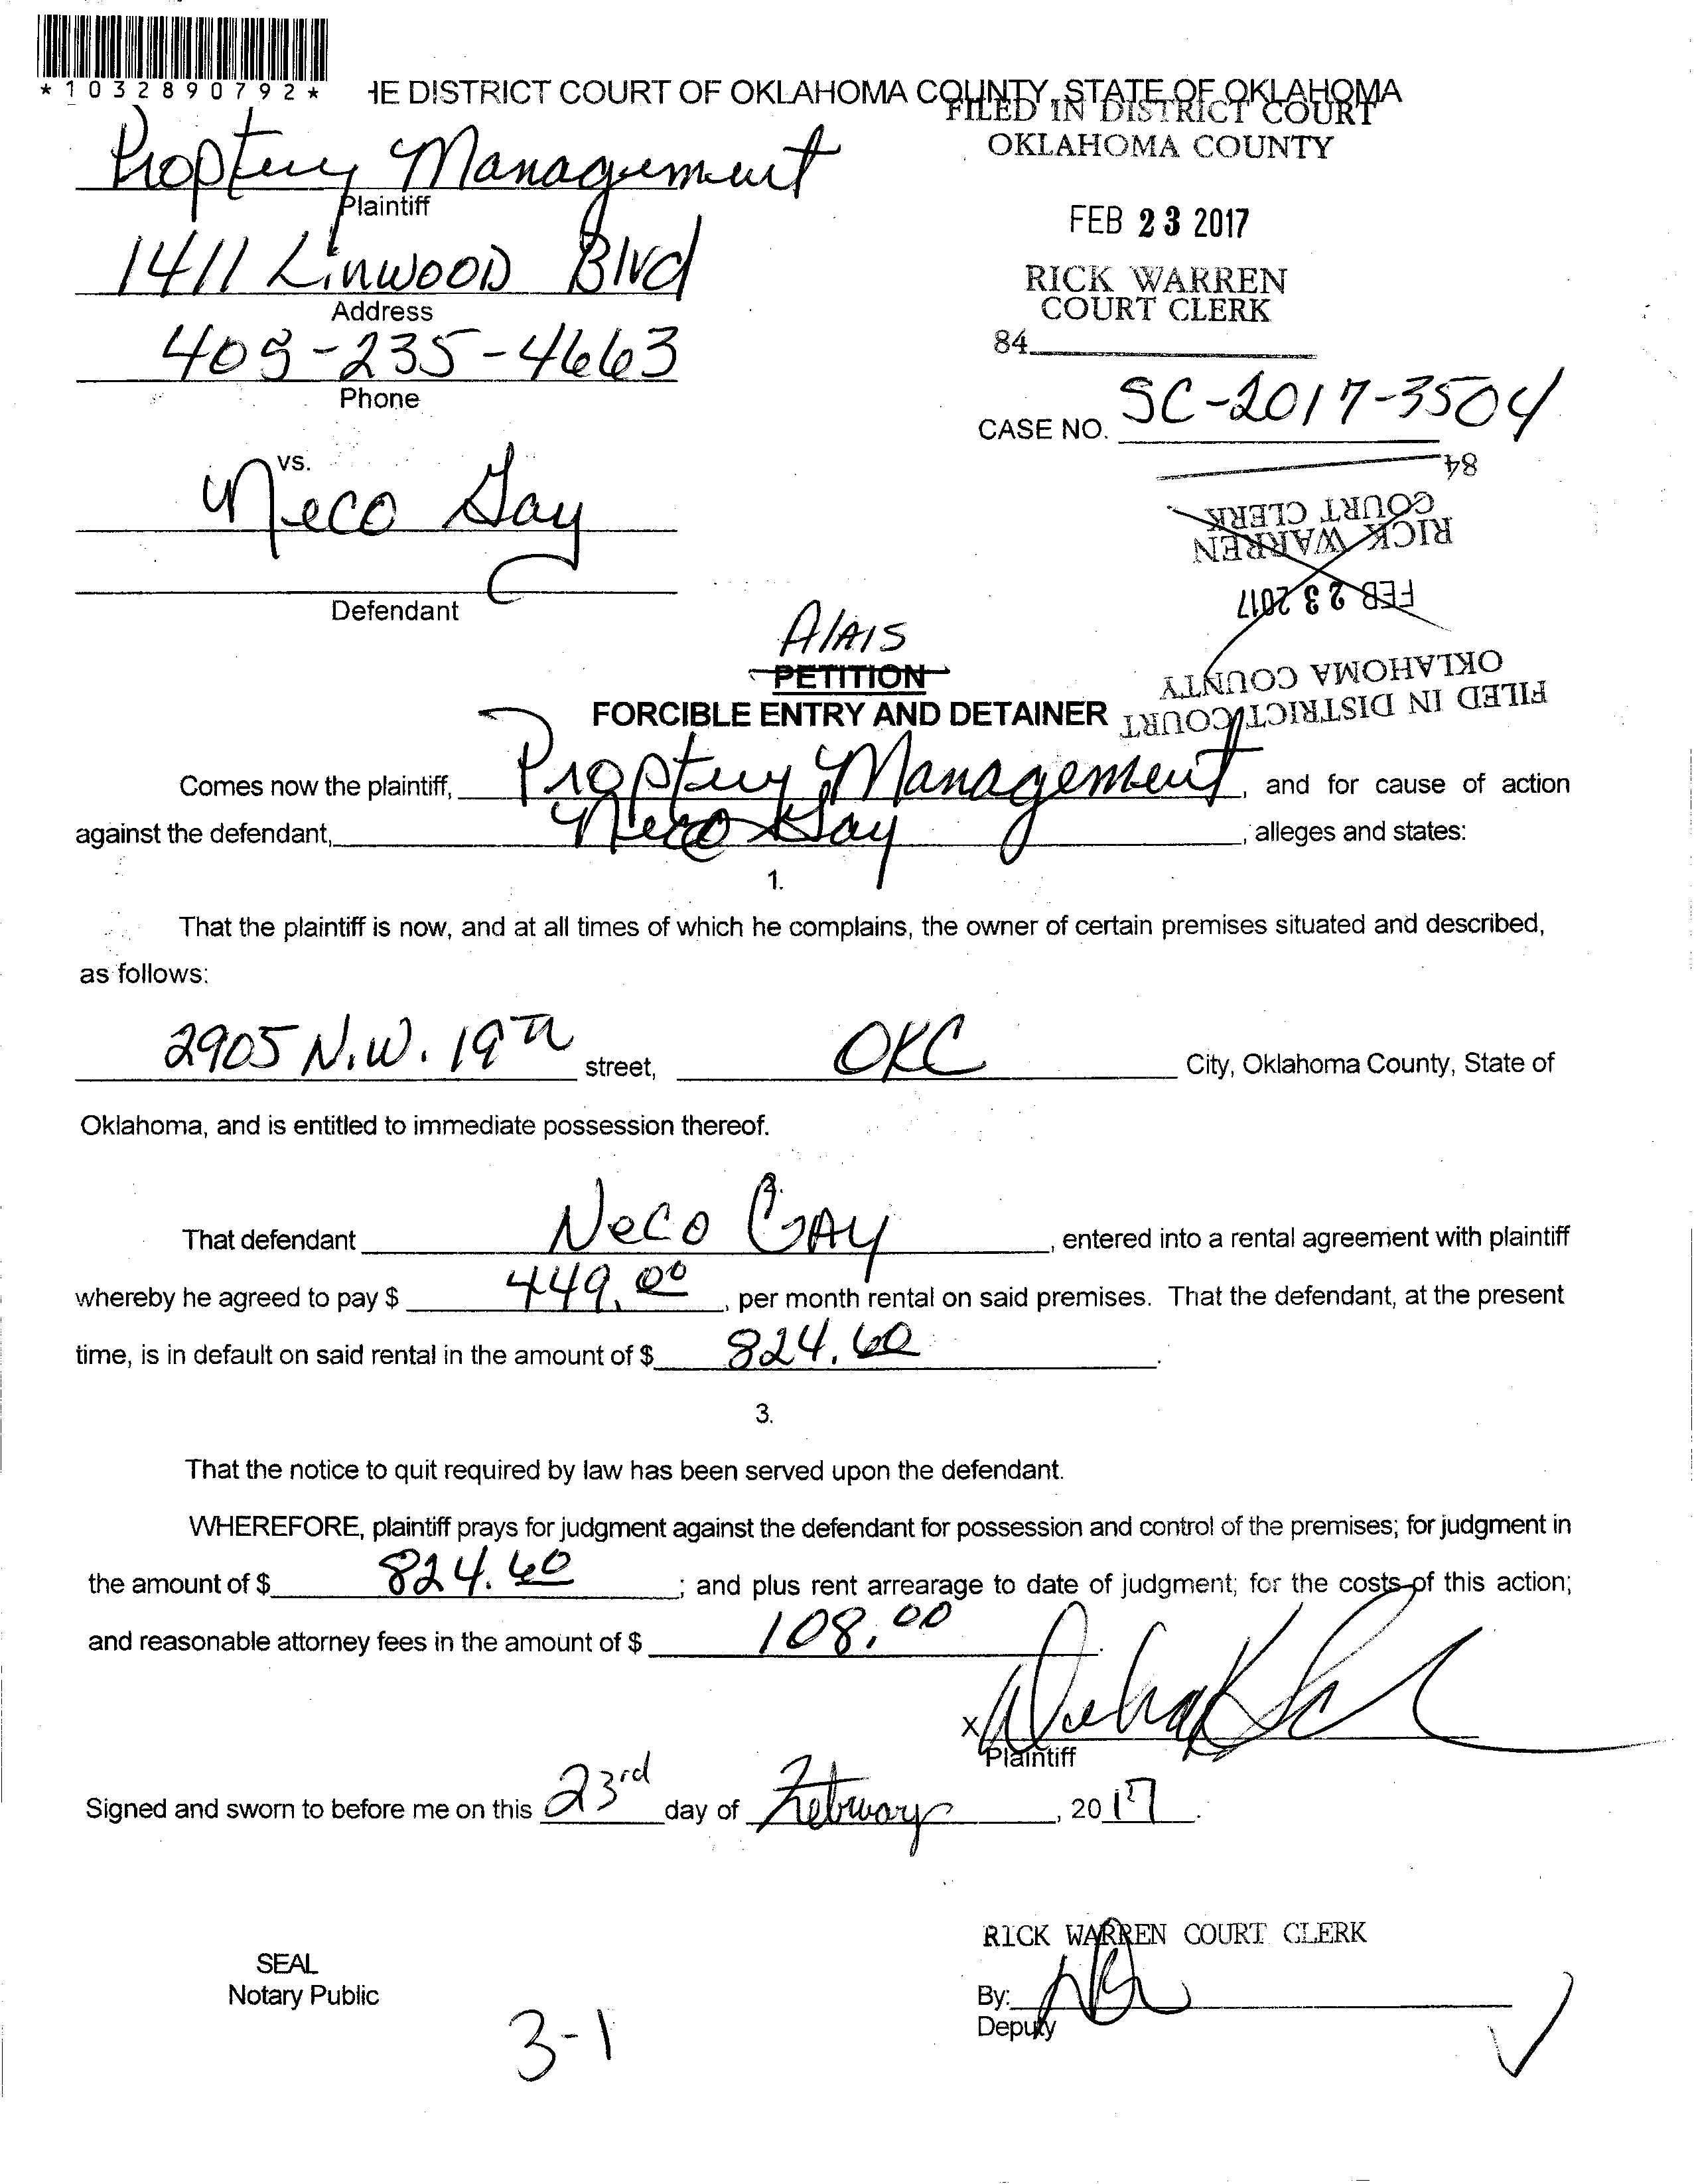 *1032890792*
HE DISTRICT COURT OF OKLAHOMA COUNTY, STATE OF OKLAHOMA
FILED IN DISTRICT COURT
OKLAHOMA COUNTY
FEB 23 2017
RICK WARREN
COURT CLERK
84
Proptery Management
Plaintiff
1411 Linwood Blvd
Address
405-235-4663
Phone
CASE NO. SC-2017-3504
vs.
Neco Gay
Defendant
FILED IN DISTRICT COURT
OKLAHOMA COUNTY
FEB 23 2017
RICK WARREN
COURT CLERK
84
AlAis
PETITION
FORCIBLE ENTRY AND DETAINER
Comes now the plaintiff, Proptery Management, and for cause of action
against the defendant, Neco Gay, alleges and states:
1.
That the plaintiff is now, and at all times of which he complains, the owner of certain premises situated and described,
as follows:
2905 N.W. 19th street, OKC City, Oklahoma County, State of
Oklahoma, and is entitled to immediate possession thereof.
2.
That defendant Neco GAy, entered into a rental agreement with plaintiff
whereby he agreed to pay $ 449.00, per month rental on said premises. That the defendant, at the present
time, is in default on said rental in the amount of $ 824.60.
3.
That the notice to quit required by law has been served upon the defendant.
WHEREFORE, plaintiff prays for judgment against the defendant for possession and control of the premises; for judgment in
the amount of $ 824.60; and plus rent arrearage to date of judgment; for the costs of this action;
and reasonable attorney fees in the amount of $ 108.00.
X
Plaintiff
Signed and sworn to before me on this 23rd day of February, 2017.
RICK WARREN COURT CLERK
SEAL
Notary Public
By:
Deputy
3-1